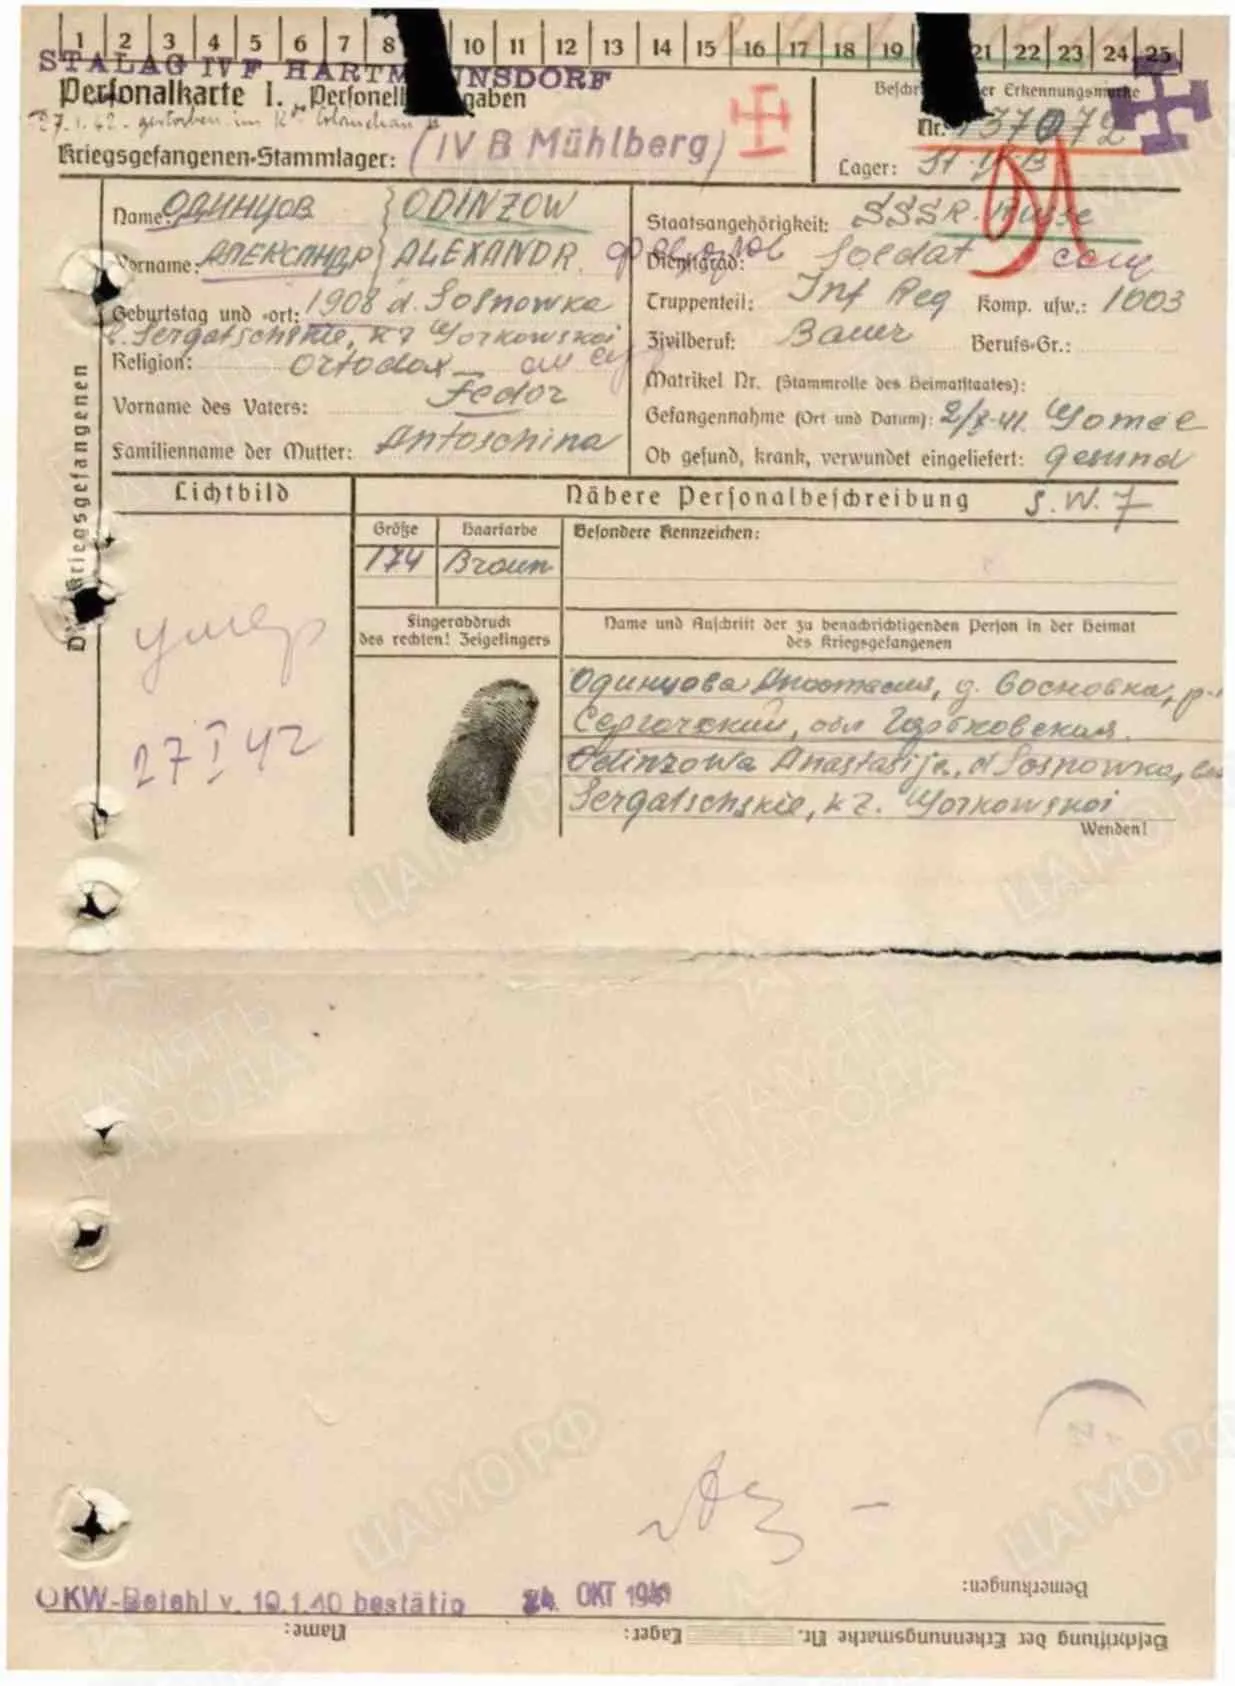 1 2 3 4 5 6 7 8 10 11 12 13 14 15 16 17 18 19 21 22 23 24 25
STALAG IV F HARTM NNSDORF
Personalkarte I. Personell gaben
Beschr er Erkennungsmarke
27.1.42. gestorben im
Nr. 137072
Kriegsgefangenen-Stammlager: (IV B Mühlberg)
Lager: St. IV B
Des Kriegsgefangenen
Name: Одинцов } ODINZOW
Vorname: Александр } ALEXANDR Федоров
Geburtstag und -ort: 1908 d. Sosnowka
Sergatschskie, kz Gorkowskoi
Religion: Ortodox
Vorname des Vaters: Fedor
Familienname der Mutter: Antoschina
Staatsangehörigkeit: SSSR. Russe
Dienstgrad: Soldat
Truppenteil: Inf Reg Komp. usw.: 1003
Zivilberuf: Bauer Berufs-Gr.:
Matrikel Nr. (Stammrolle des Heimatstaates):
Gefangennahme (Ort und Datum): 2/X-41. Gomel
Ob gesund, krank, verwundet eingeliefert: gesund
Lichtbild
Nähere Personalbeschreibung S.W.7
Größe Haarfarbe Besondere Kennzeichen:
174 Braun
умер
27 I 42
Fingerabdruck
des rechten! Zeigefingers
Name und Anschrift der zu benachrichtigenden Person in der Heimat
des Kriegsgefangenen
Одинцова Анастасия, д. Сосновка, р-
Сергачский, обл Горьковская.
Odinzowa Anastasija, d Sosnowka,
Sergatschskie, kz. Gorkowskoi
Wenden!
Bemerkungen:
OKW-Befehl v. 19.1.40 bestätig 24. OKT 1941
Name: Lager: Beschriftung der Erkennungsmarke Nr.
ПАМЯТЬ НАРОДА
ЦАМО.РФ